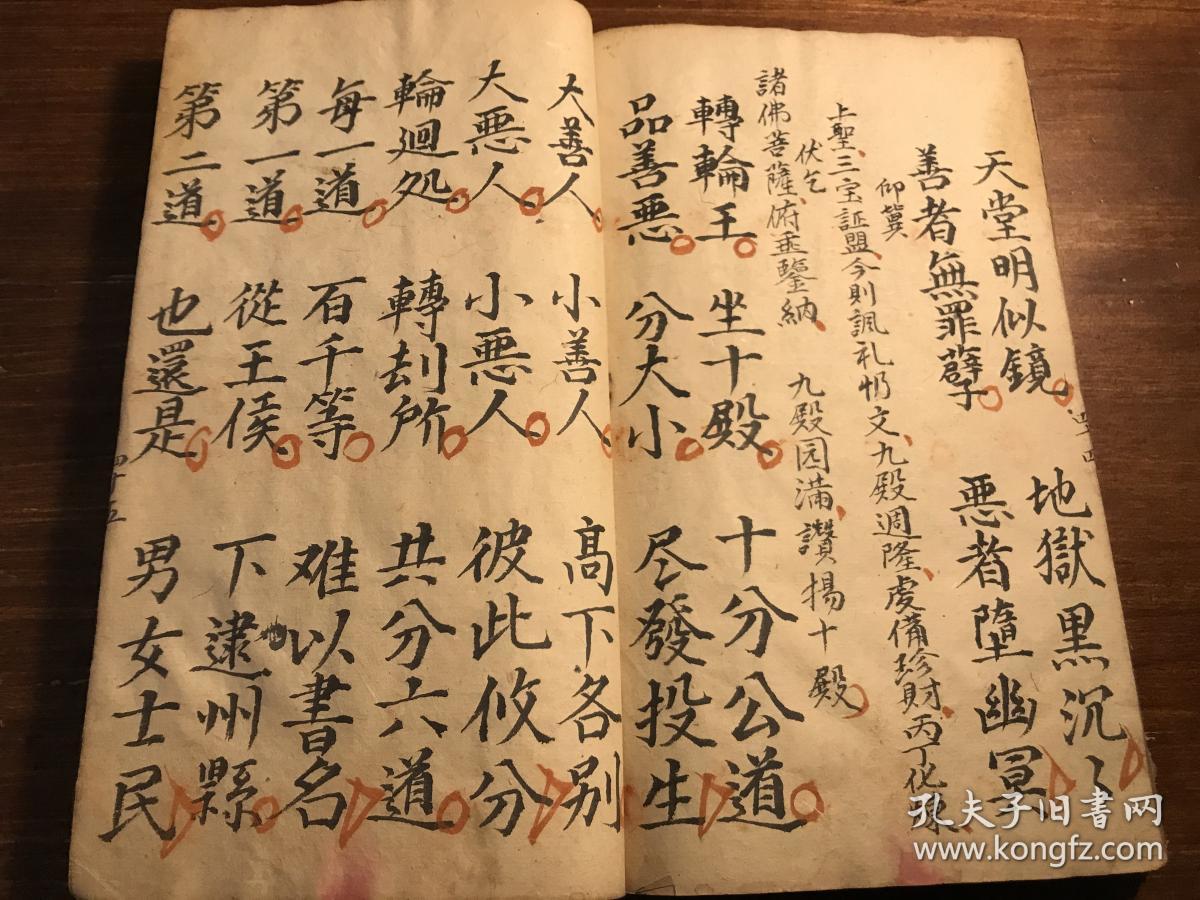 天堂明似鏡 地獄黑沉々
善者無罪孽 悪者墮幽冥
仰冀
上聖三宝証盟今則諷礼忏文九殿週隆虔備珍財丙丁化
伏乞
諸佛菩薩俯垂鑒納 九殿园满讚揚十殿
轉輪王 坐十殿 十分公道
品善悪 分大小 尽發投生
大善人 小善人 高下各别
大悪人 小悪人 彼此攸分
輪迴处 轉刦所 共分六道
每一道 百千等 难以書名
第一道 從王侯 下逮州縣
第二道 也還是 男女士民
四十五
孔夫子旧书网
www.kongfz.com